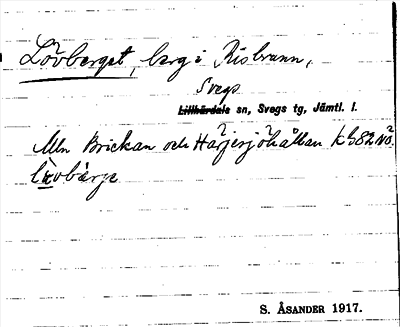 Lövberget, berg i Risbrunn,
Svegs
Lillhärdals sn, Svegs tg, Jämtl. l.
Mln Brickan och Härjesjöhållan kb 82 NÖ.
S. ÅSANDER 1917.